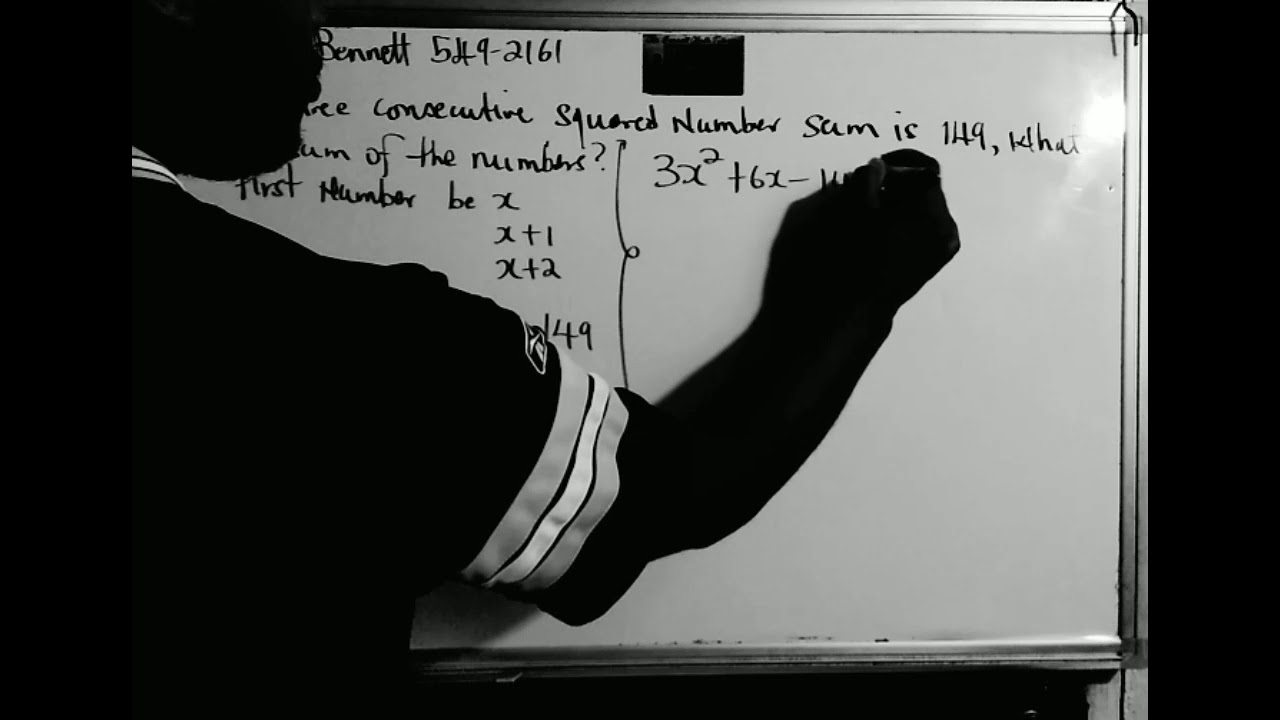 Bennett 549-2161
consecutive squared Number sum is 149, What
of the numbers?
First Number be x
x+1
x+2
149
3x²+6x-